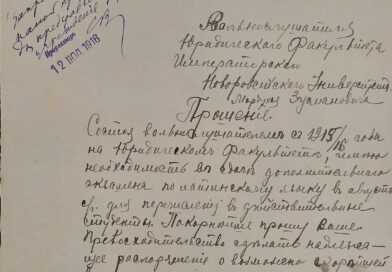 12 ІЮЛ 1916
Вольнослушателя
Юридическаго Факультета
Императорскаго
Новороссійскаго Университета
Прошеніе
Состоя вольнослушателемъ съ 1915/16 года
на Юридическомъ Факультетѣ, имѣю
необходимость въ сдачѣ дополнительнаго
экзамена по латинскому языку въ августѣ
с/г для перечисленія въ дѣйствительные
студенты. Покорнѣйше прошу Ваше
Превосходительство сдѣлать надлежа-
щее распоряженіе о возможно скорѣйшей